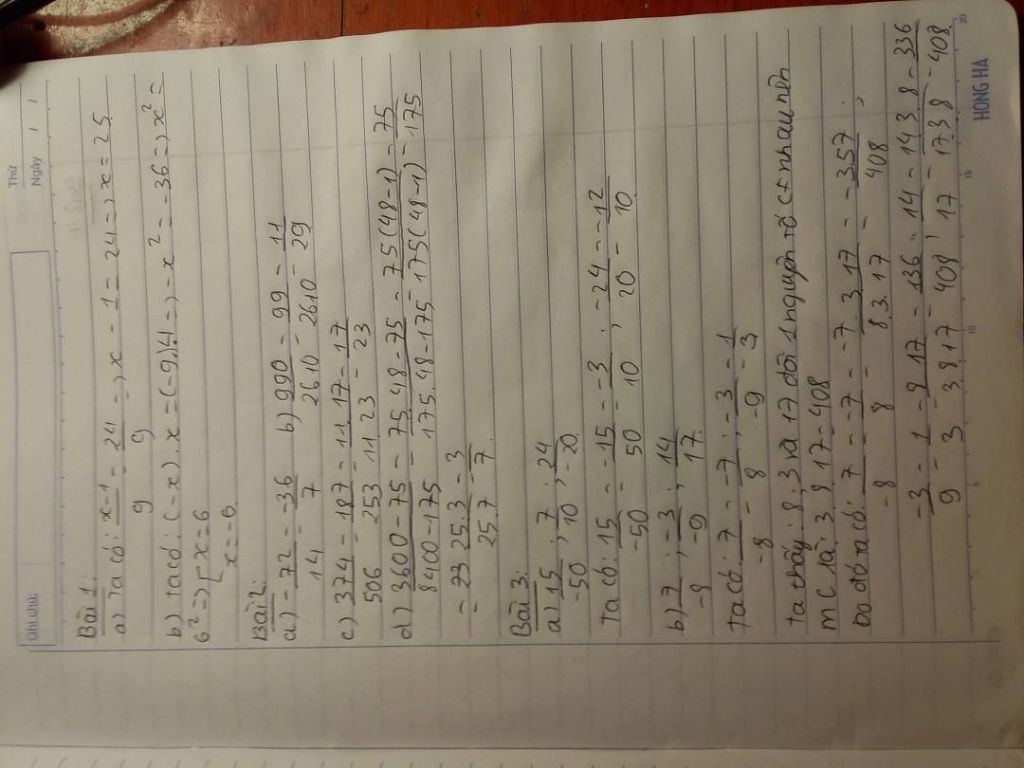 Thứ
Ngày 1 1
Ghi chú:
Bài 1:
a) Ta có: x-1/9 = 24/9 => x - 1 = 24 => x = 25
b) ta có: (-x).x = (-9).4 => -x² = -36 => x² =
6² => [x = 6
x = -6
Bài 2:
a) -72/14 = -36/7 b) 990/2610 = 99/261 = 11/29
c) 374/506 = 187/253 = 11.17/11.23 = 17/23
d) 3600-75/8400-175 = 75.48-75/175.48-175 = 75(48-1)/175(48-1) = 75/175
= 25.3/25.7 = 3/7
Bài 3:
a) 15/-50; 7/10; 24/-20
Ta có: 15/-50 = -15/50 = -3/10; 24/-20 = -24/20 = -12/10
b) 7/-8; -3/-9; 14/17
Ta có: 7/-8 = -7/8; -3/-9 = 3 = 1/3
ta thấy: 8; 3 và 17 đôi 1 nguyên tố cùng nhau nên
MC là: 3.8.17 = 408
Do đó ta có: 7/-8 = -7/8 = -7.3.17/8.3.17 = -357/408;
-3/-9 = 1/3 = 8.17/3.8.17 = 136/408; 14/17 = 14.3.8/17.3.8 = 336/408
HONG HA